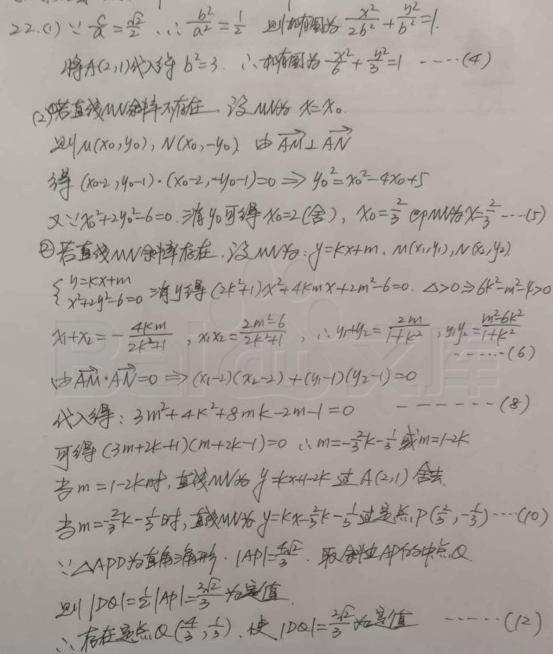 22.(1) ∵ c/a = √2/2 ∴ b²/a² = 1/2 则椭圆为 x²/2b² + y²/b² = 1.
将A(2,1)代入得 b²=3. ∴ 椭圆为 x²/6 + y²/3 = 1 ----(4)
(2)①若直线MN斜率不存在, 设MN为 x=x₀
则M(x₀,y₀), N(x₀,-y₀) 由 AM⊥AN
得 (x₀-2, y₀-1)·(x₀-2, -y₀-1)=0 ⇒ y₀²=x₀²-4x₀+5
又∵x₀²+2y₀²-6=0. 消y₀可得 x₀=2(舍), x₀=2/3 即MN为x=2/3 ---(5)
②若直线MN斜率存在, 设MN为: y=kx+m, M(x₁,y₁), N(x₂,y₂)
{ y=kx+m x²+2y²-6=0 消y得 (2k²+1)x²+4kmx+2m²-6=0. Δ>0 ⇒ 6k²-m²+3>0
x₁+x₂ = -4km/2k²+1, x₁x₂ = 2m²-6/2k²+1, ∴ y₁+y₂ = 2m/1+k², y₁y₂ = m²-6k²/1+k²
------(6)
由AM·AN=0 ⇒ (x₁-2)(x₂-2)+(y₁-1)(y₂-1)=0
代入得: 3m²+4k²+8mk-2m-1=0 -------(8)
可得 (3m+2k+1)(m+2k-1)=0 ∴ m=-2/3k-1/3 或 m=1-2k
当 m=1-2k时, 直线MN为 y=kx+1-2k 过A(2,1) 舍去
当m=-2/3k-1/3时, 直线MN为 y=kx-2/3k-1/3 过定点P(2/3,-1/3) ---(10)
∵ △APD为直角三角形. |AP|=4√2/3. 取斜边AP的中点Q
则 |DQ|=1/2|AP|=2√2/3 为定值
∴ 存在定点Q(4/3,1/3). 使 |DQ|=2√2/3 为定值 -----(12)